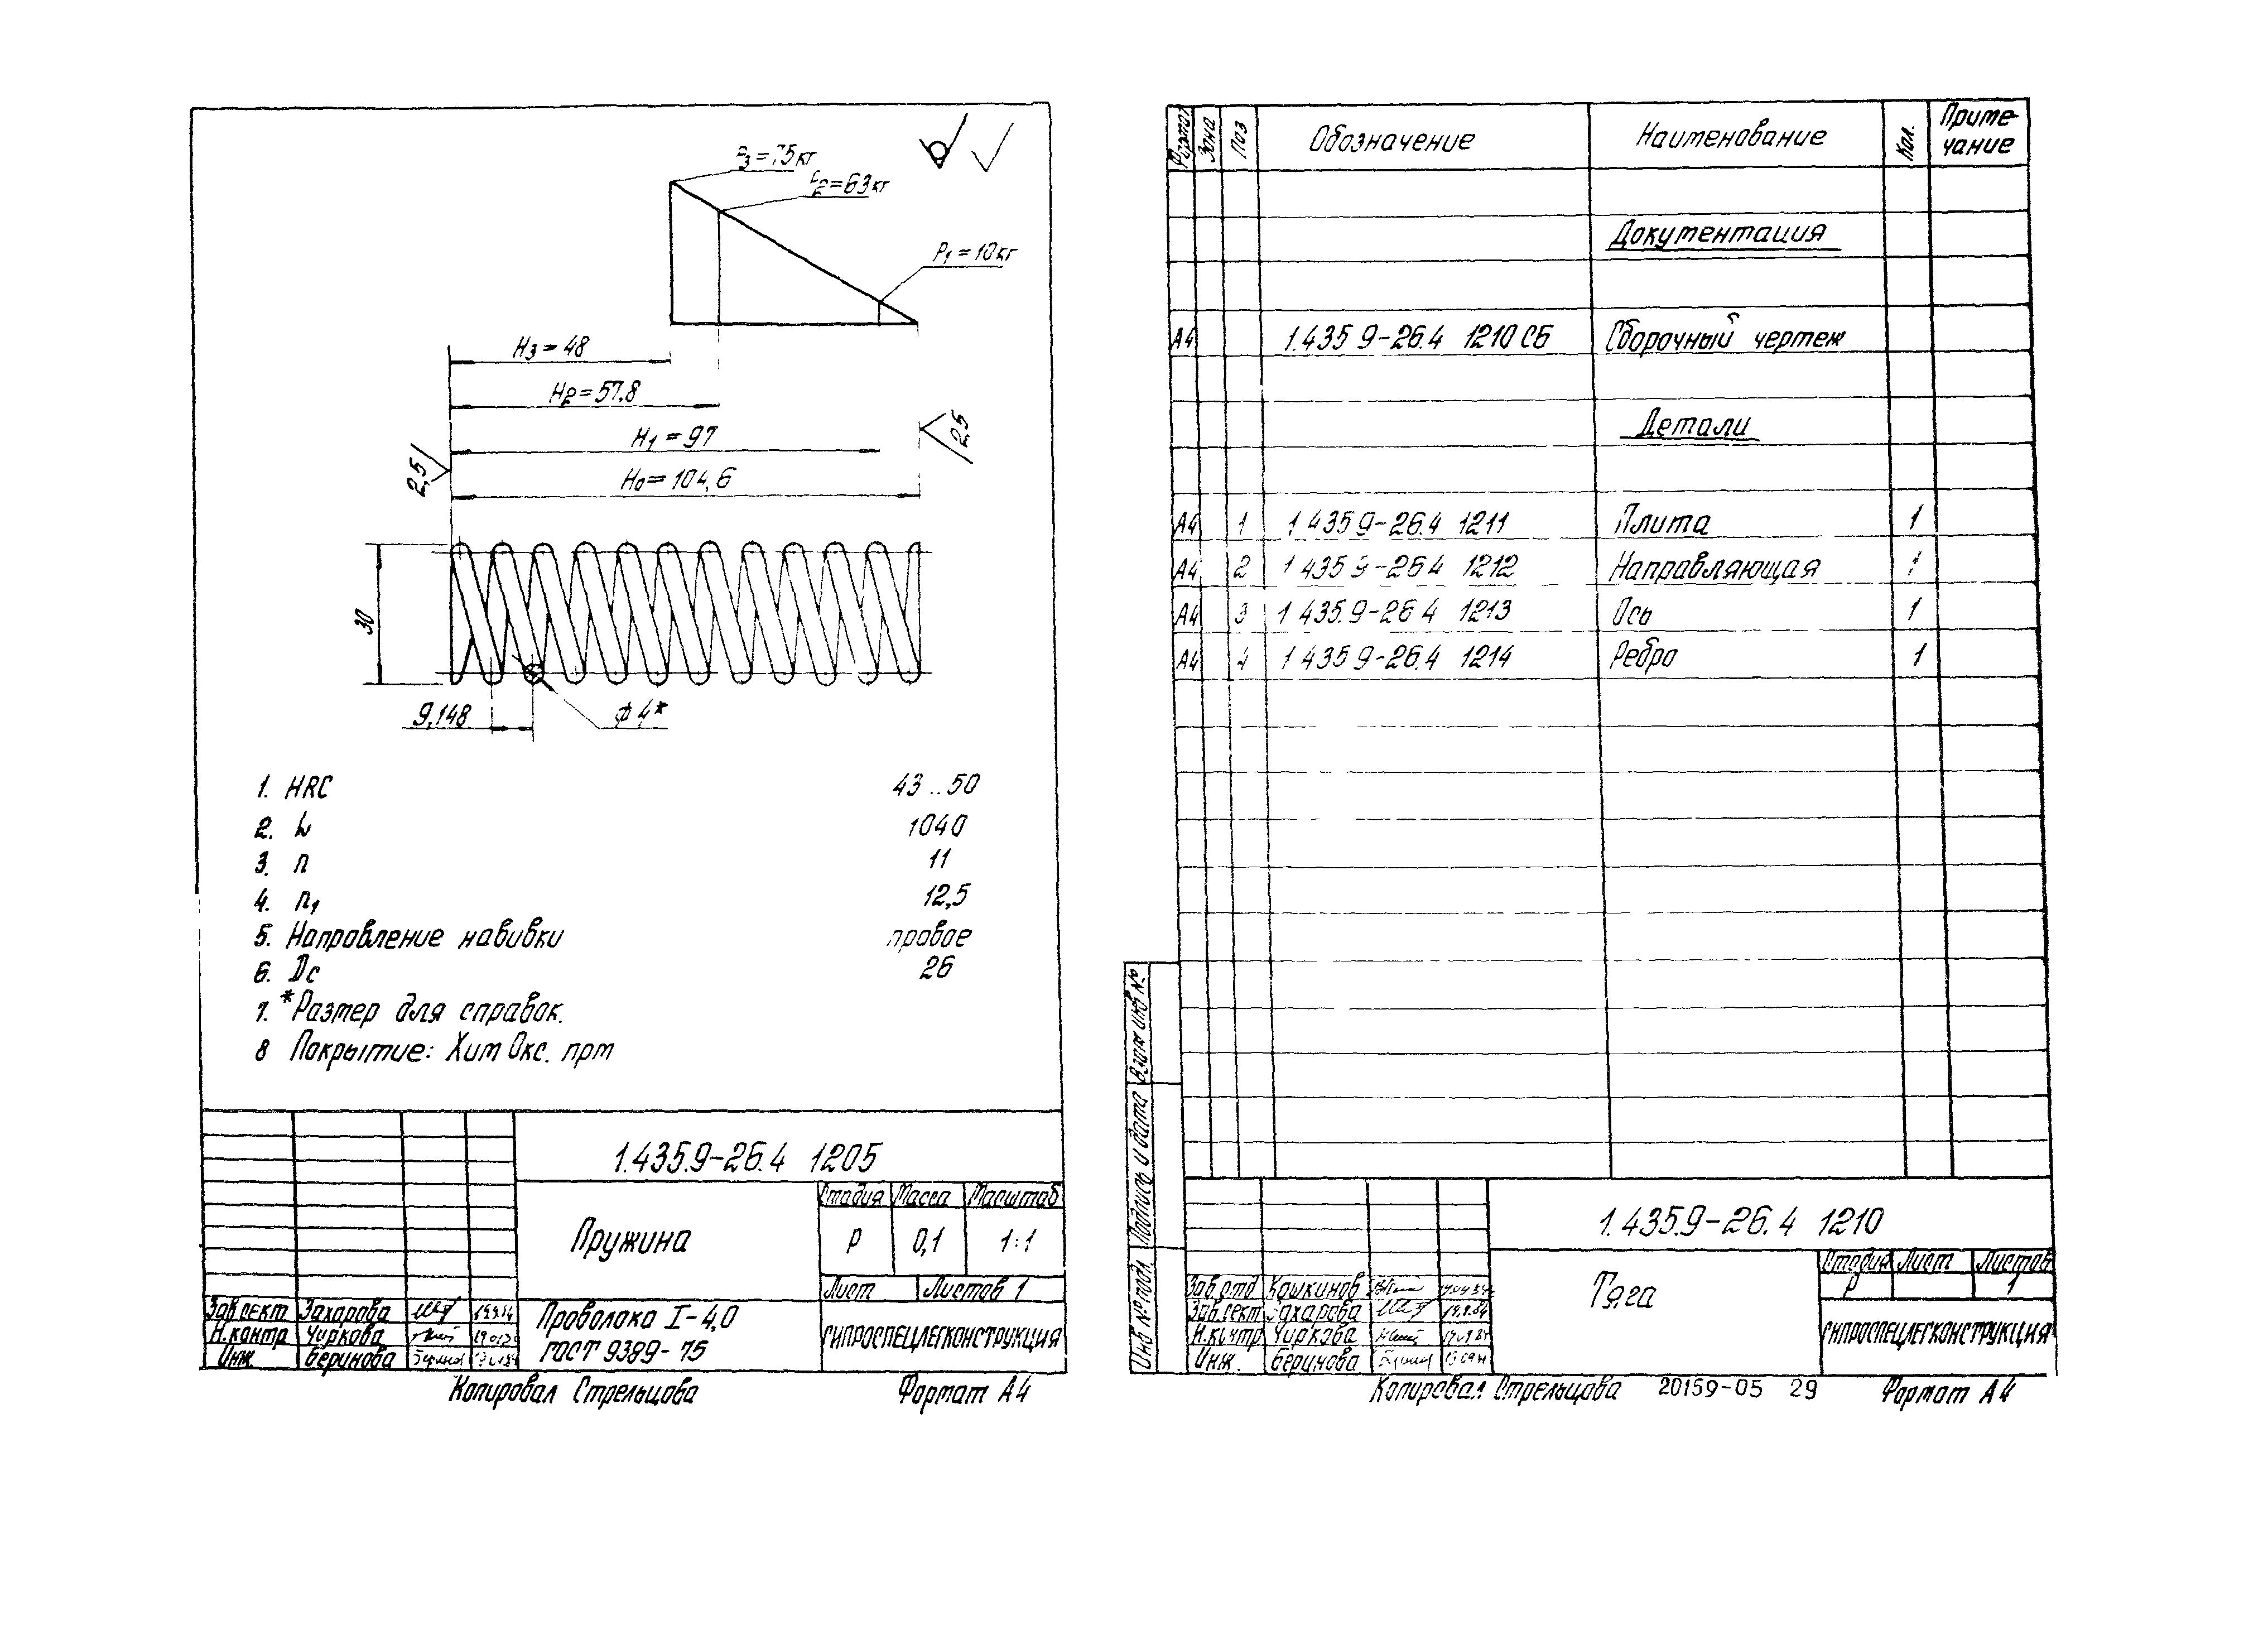 P3=75кг
P2=63кг
P1=10кг
H3=48
H2=57.8
H1=97
H0=104,6
2,5
2,5
30
9,148
ф4*
1. HRC 43..50
2. L 1040
3. n 11
4. n1 12,5
5. Направление навивки правое
6. Dc 26
7. *Размер для справок.
8 Покрытие: Хим Окс. прм
1.435.9-26.4 1205
Пружина
Стадия Масса Масштаб
Р 0,1 1:1
Лист Листов 1
Проволока I-4,0
ГОСТ 9389-75
ГИПРОСПЕЦЛЕГКОНСТРУКЦИЯ
Зав.сект Захарова
Н.контр Чиркова
Инж. Беринова
Копировал Стрельцова Формат А4
Формат Зона Поз Обозначение Наименование Кол. Приме-
чание
Документация
А4 1.435 9-26.4 1210 СБ Сборочный чертеж
Детали
А4 1 1.435 9-26.4 1211 Плита 1
А4 2 1 435 9-26 4 1212 Направляющая 1
А4 3 1 435.9-26 4 1213 Ось 1
А4 4 1 435 9-26.4 1214 Ребро 1
Взам инв №
Подпись и дата
Инв № подл.
1.435.9-26.4 1210
Тяга
Стадия Лист Листов
Р 1
ГИПРОСПЕЦЛЕГКОНСТРУКЦИЯ
Зав.отд Кашкинов
Зав.сект Захарова
Н.контр Чиркова
Инж. Беринова
Копировал Стрельцова 20159-05 29 Формат А4